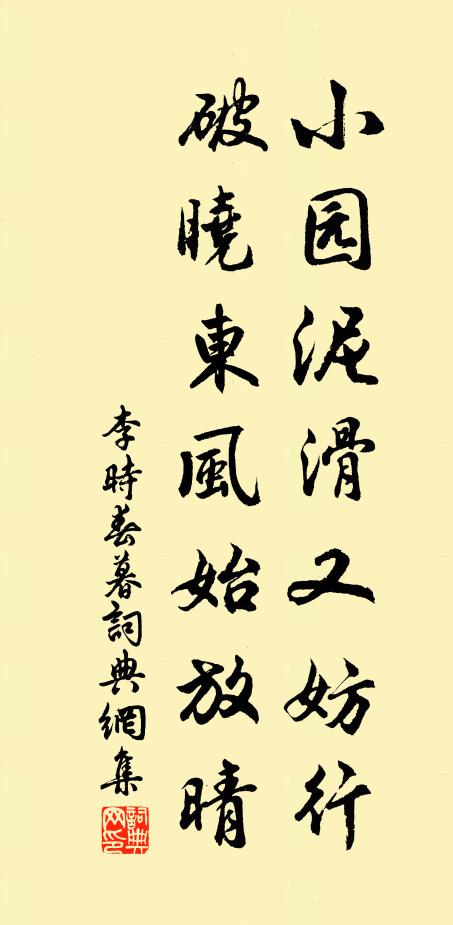 小园泥滑又妨行
破曉東風始放晴
李時春暮詞典網集
詞典
网印